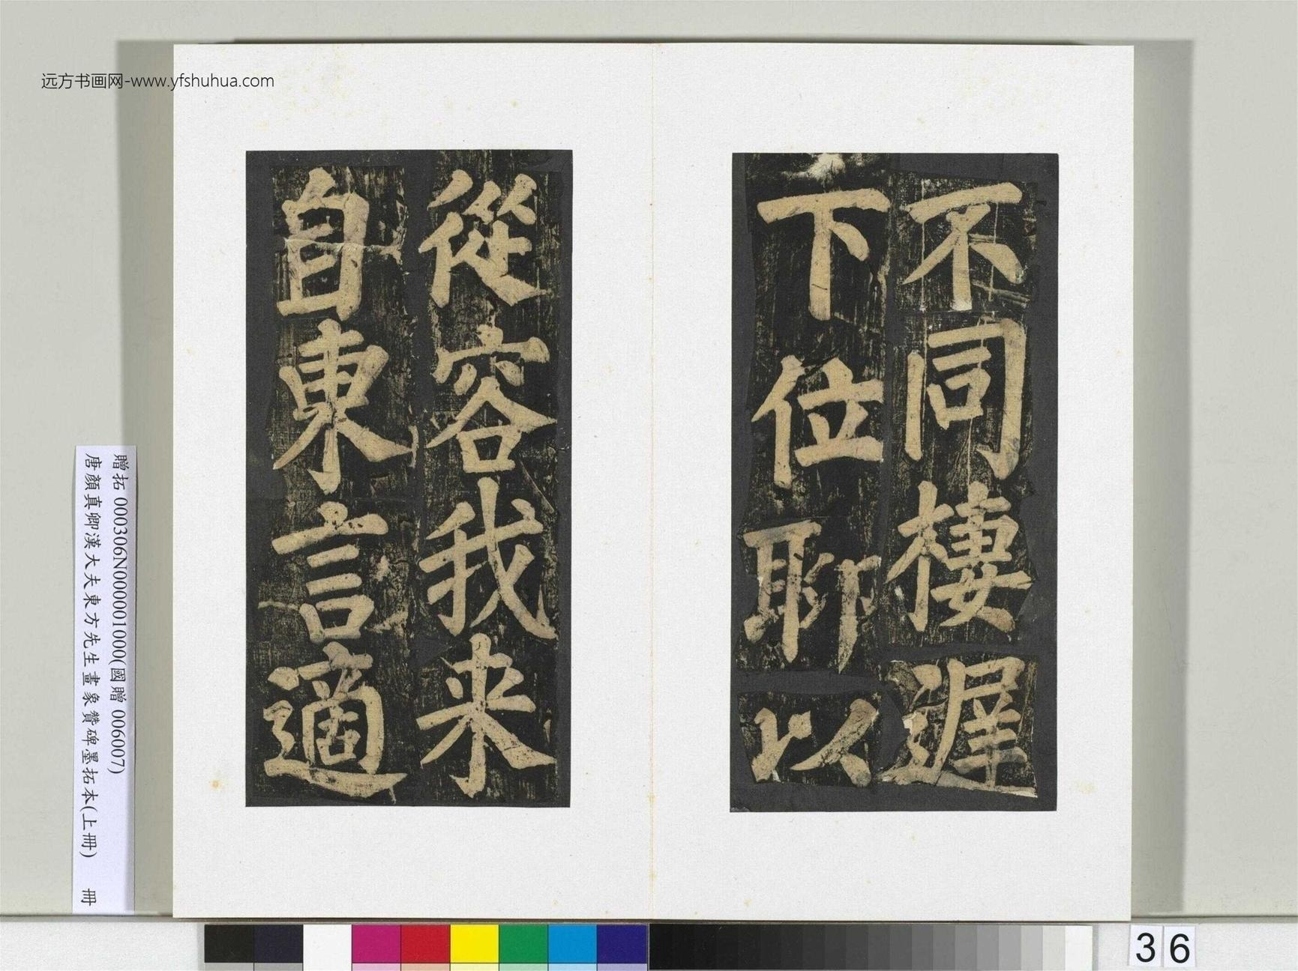 远方书画网-www.yfshuhua.com
不同棲遲
下位聊以
從容我来
自東言適
贈拓 000306N000001000(國贈 006007)
唐顏真卿漢大夫東方先生畫象贊碑墨拓本(上冊) 冊
36